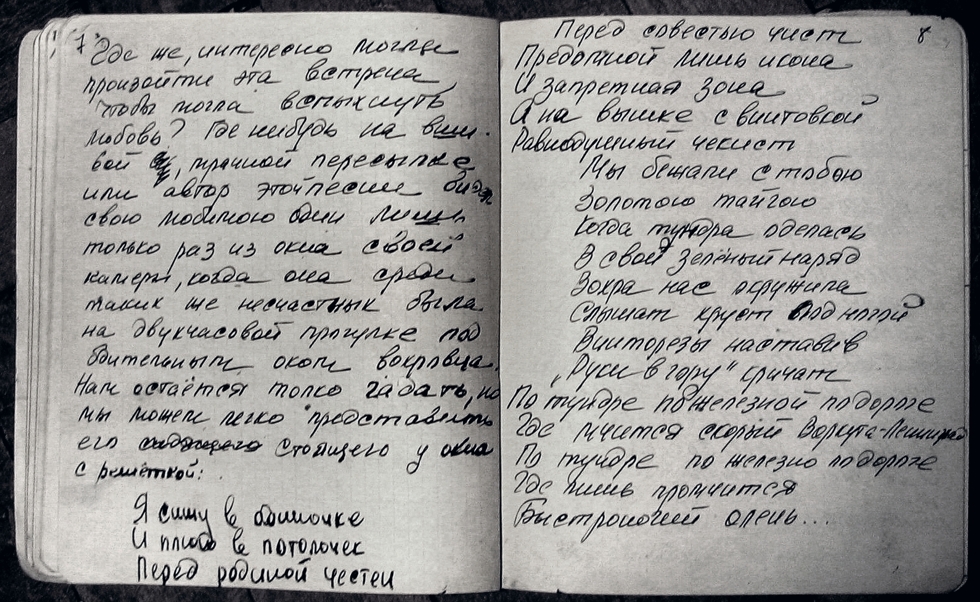 7
Где же, интересно могла
произойти эта встреча
чтобы могла вспыхнуть
любовь? Где нибудь на вши-
вой, мрачной пересылке
или автор этой песни видел
свою любимою один лишь
только раз из окна своей
камеры, когда она среди
таких же несчастных была
на двухчасовой прогулке под
бдительным оком вохровца.
Нам остаётся толко гадать, но
мы можем легко представить
его стоящего у окна
с решёткой:
Я сижу в одиночке
И плюю в потолочек
Перед родиной честен
8
Перед совестью чист
Предомной лишь икона
И запретная зона
А на вышке с винтовкой
Равнодушный чекист
Мы бежали с тобою
Золотою тайгою
Когда тундра оделась
В свой зелёный наряд
Вохра нас окружила
Слышат хруст под ногой
Винторезы наставив
„Руки в гору" кричат
По тундре по железной подороге
Где мчится скорый Воркута-Ленинград
По тундре по железно подороге
Где лишь промчится
Быстроногий олень...